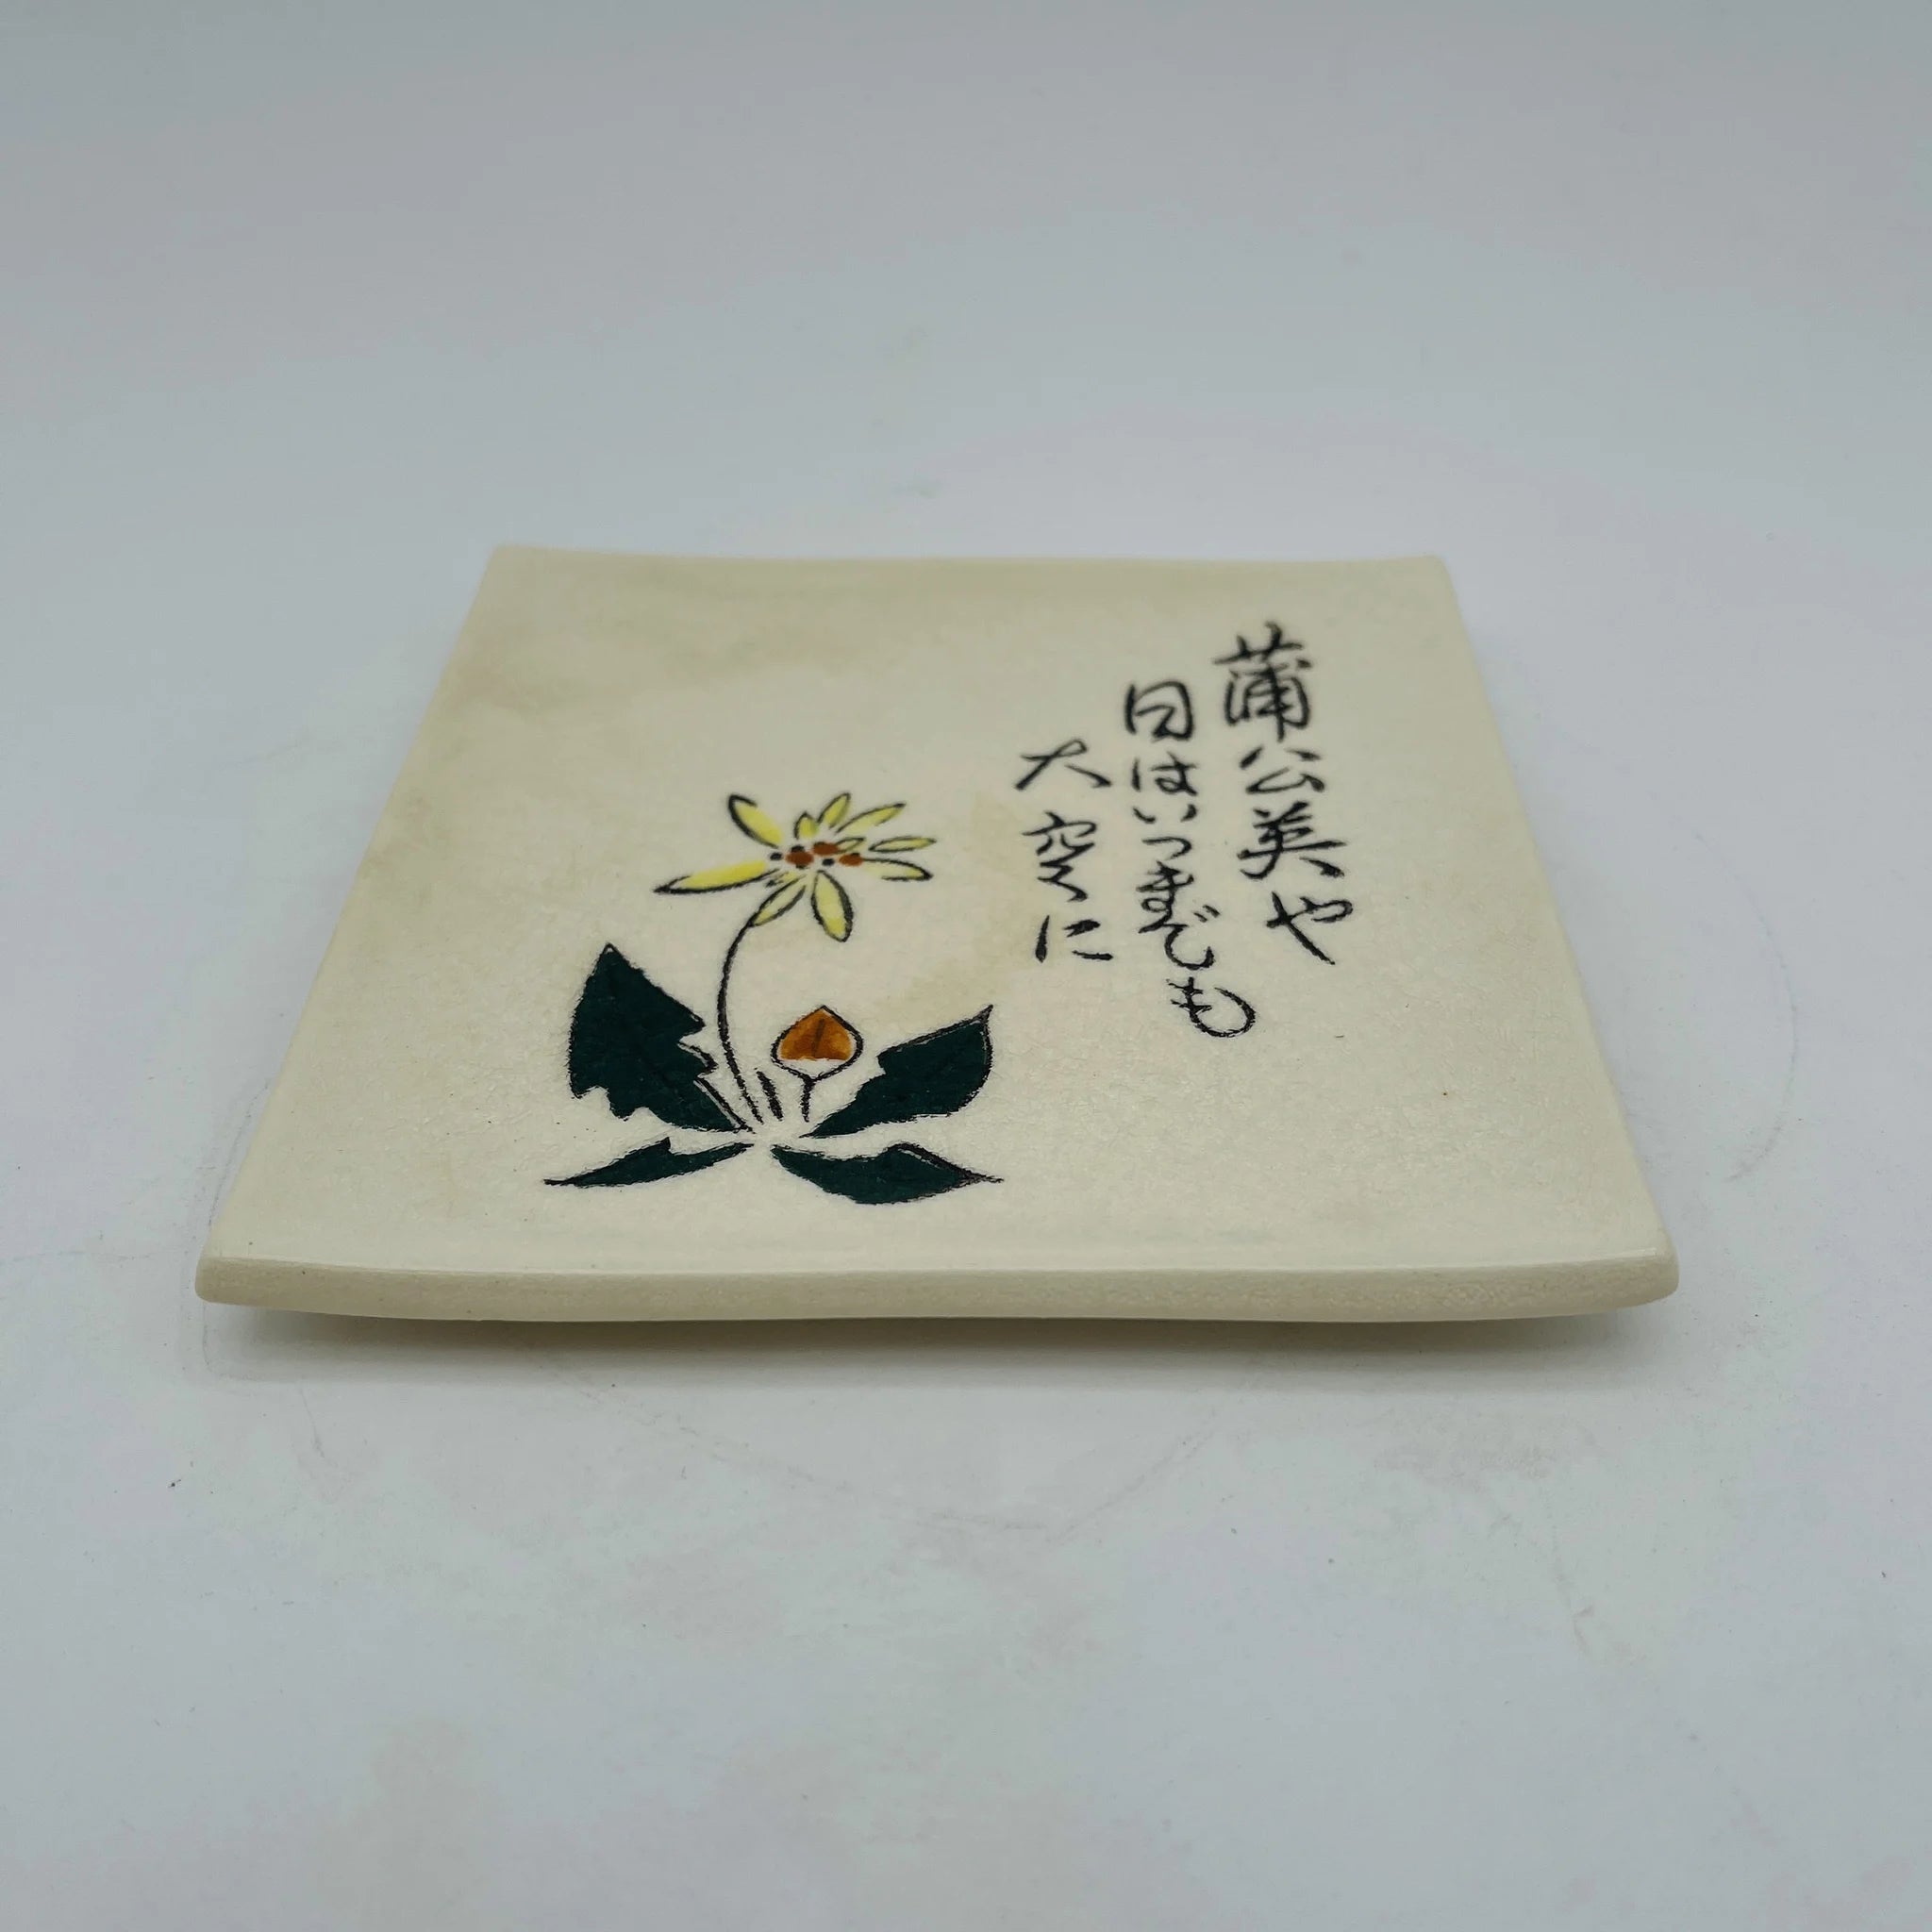 蒲公英や
日はいつまでも
大空に